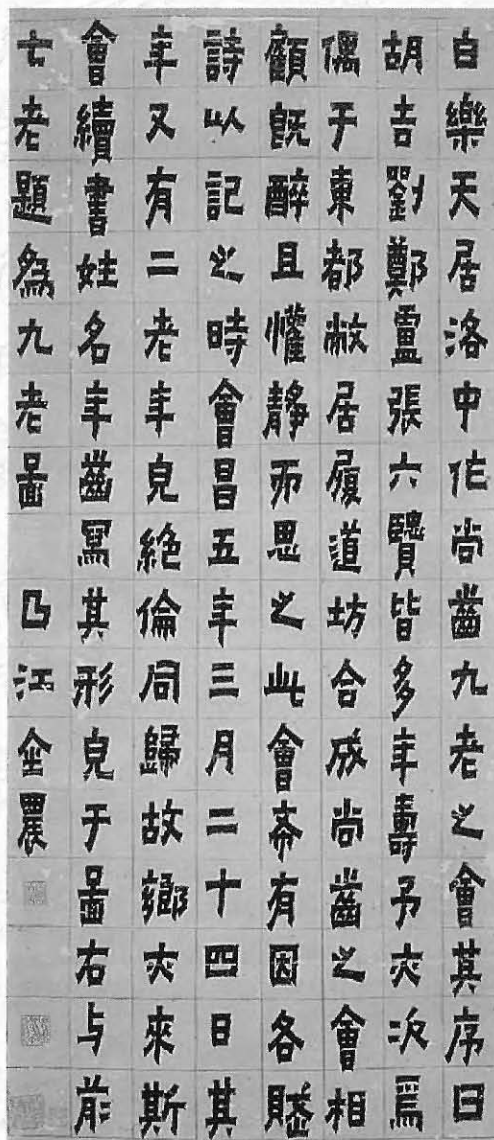 白樂天居洛中作尚齒九老之會其序曰
胡吉劉鄭盧張六賢皆多年壽予亦次焉
偶于東都敝居履道坊合成尚齒之會相
顧既醉且懽靜而思之此會希有因各賦
詩以記之時會昌五年三月二十四日其
年又有二老年皃絕倫同歸故鄉亦來斯
會續書姓名年齒寫其形皃于啚右与前
七老題爲九老啚 曲江金農